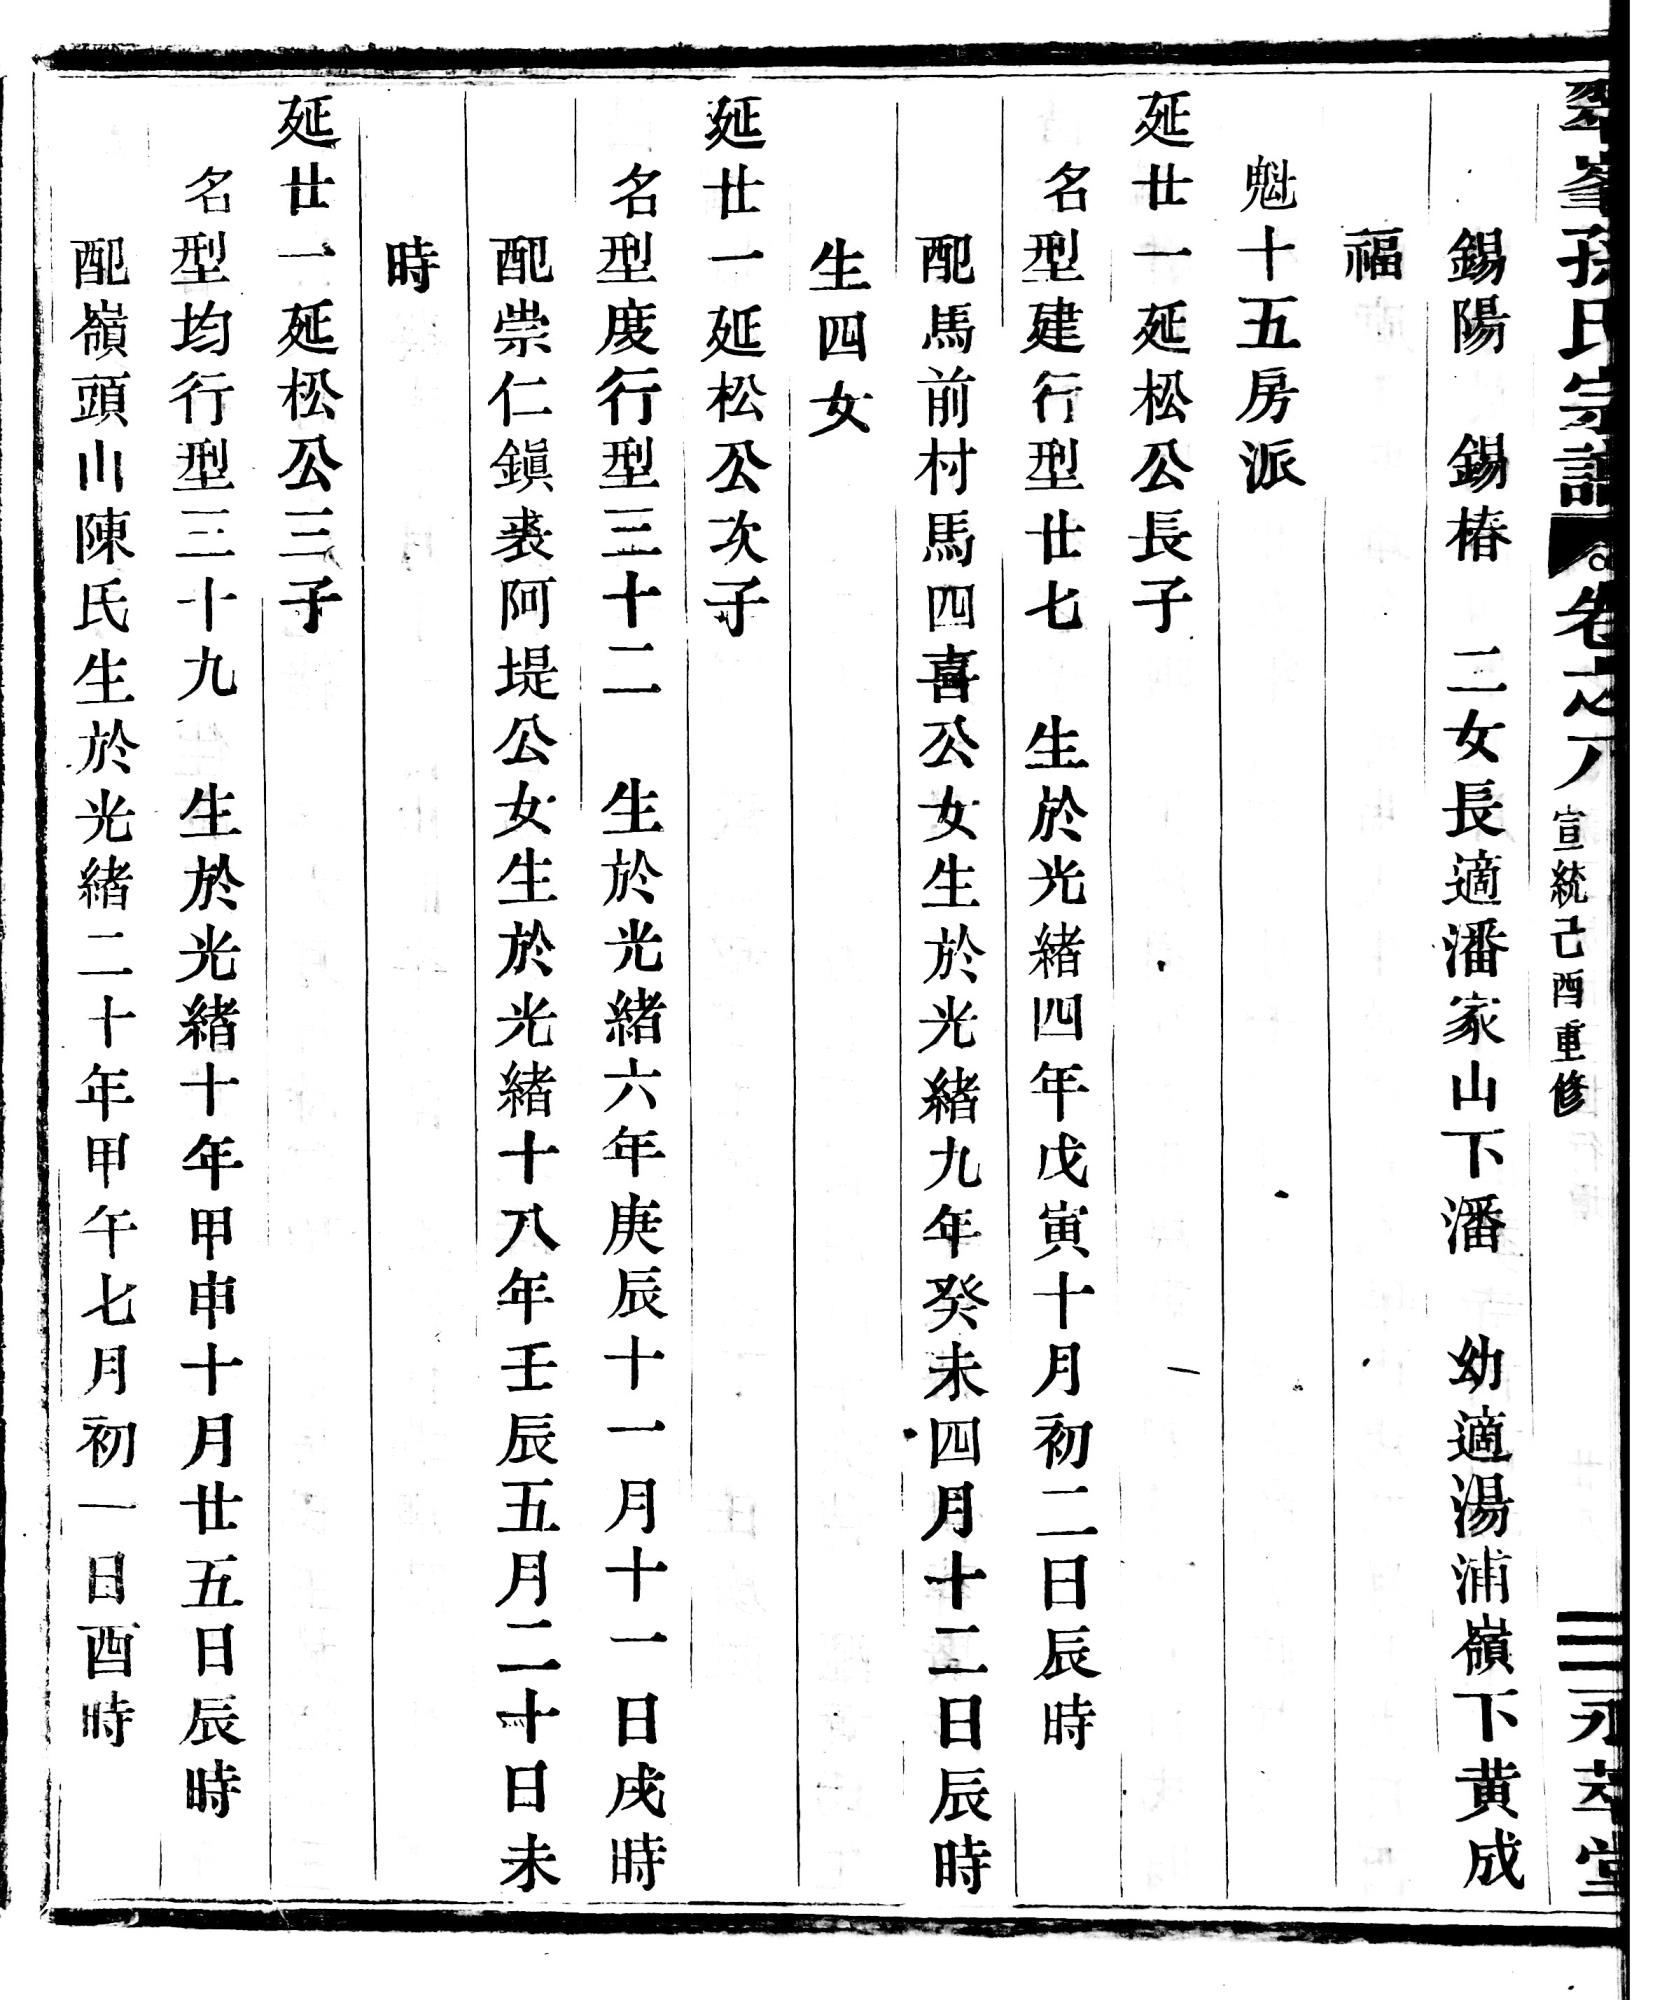 翠峯孫氏宗譜 卷之八 宣統己酉重修 三 永萃堂
錫陽 錫椿 二女長適潘家山下潘 幼適湯浦嶺下黃成
福
魁十五房派
延廿一延松公長子
名型建行型廿七 生於光緒四年戊寅十月初二日辰時
配馬前村馬四喜公女生於光緒九年癸未四月十二日辰時
生四女
延廿一延松公次子
名型度行型三十二 生於光緒六年庚辰十一月十一日戌時
配崇仁鎭裘阿堤公女生於光緒十八年壬辰五月二十日未
時
延廿一延松公三子
名型均行型三十九 生於光緒十年甲申十月廿五日辰時
配嶺頭山陳氏生於光緒二十年甲午七月初一日酉時